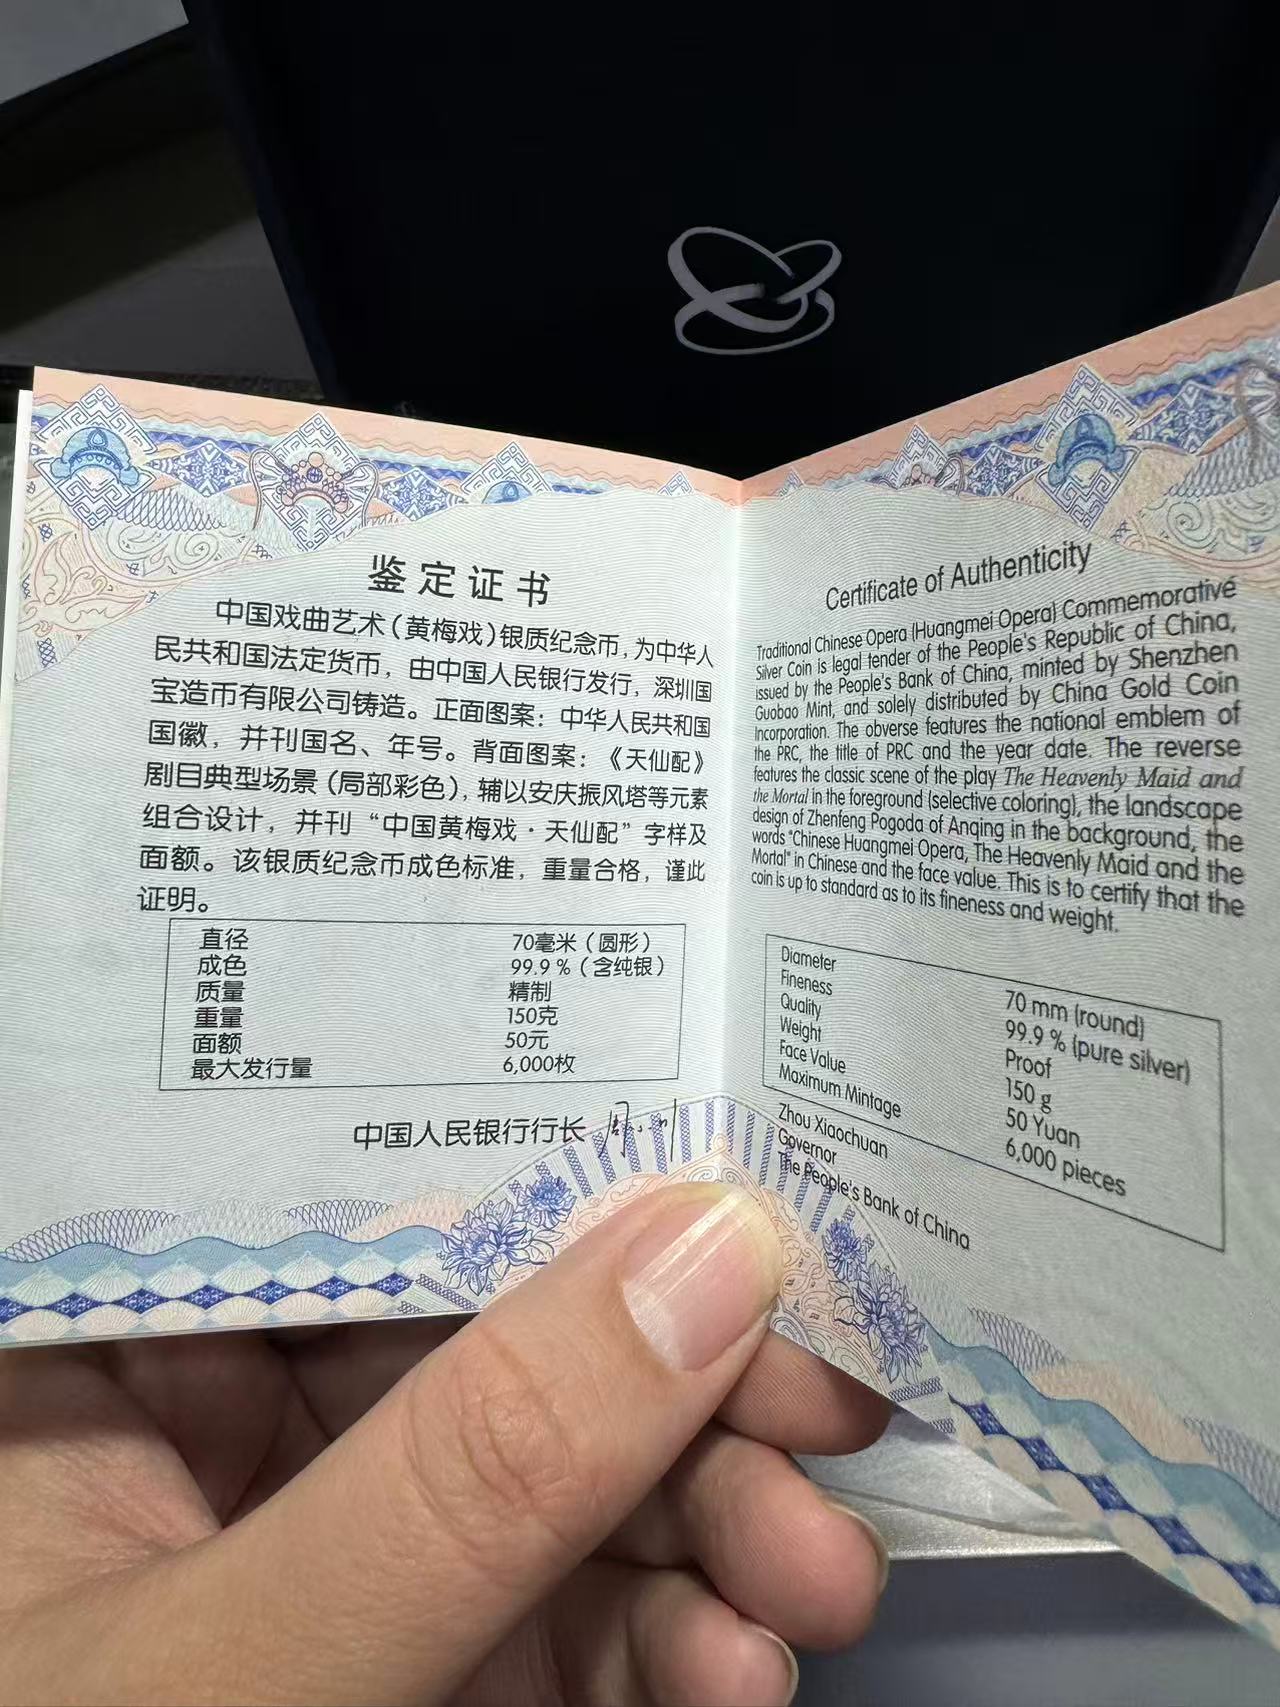 鉴定证书
中国戏曲艺术（黄梅戏）银质纪念币，为中华人
民共和国法定货币，由中国人民银行发行，深圳国
宝造币有限公司铸造。正面图案：中华人民共和国
国徽，并刊国名、年号。背面图案：《天仙配》
剧目典型场景（局部彩色），辅以安庆振风塔等元素
组合设计，并刊“中国黄梅戏·天仙配”字样及
面额。该银质纪念币成色标准，重量合格，谨此
证明。
直径 70毫米（圆形）
成色 99.9％（含纯银）
质量 精制
重量 150克
面额 50元
最大发行量 6,000枚
中国人民银行行长 周小川
Certificate of Authenticity
Traditional Chinese Opera (Huangmei Opera) Commemorative
Silver Coin is legal tender of the People's Republic of China,
issued by the People's Bank of China, minted by Shenzhen
Guobao Mint, and solely distributed by China Gold Coin
Incorporation. The obverse features the national emblem of
the PRC, the title of PRC and the year date. The reverse
features the classic scene of the play The Heavenly Maid and
the Mortal in the foreground (selective coloring), the landscape
design of Zhenfeng Pogoda of Anqing in the background, the
words "Chinese Huangmei Opera, The Heavenly Maid and the
Mortal" in Chinese and the face value. This is to certify that the
coin is up to standard as to its fineness and weight.
Diameter 70 mm (round)
Fineness 99.9 % (pure silver)
Quality Proof
Weight 150 g
Face Value 50 Yuan
Maximum Mintage 6,000 pieces
Zhou Xiaochuan
Governor
The People's Bank of China